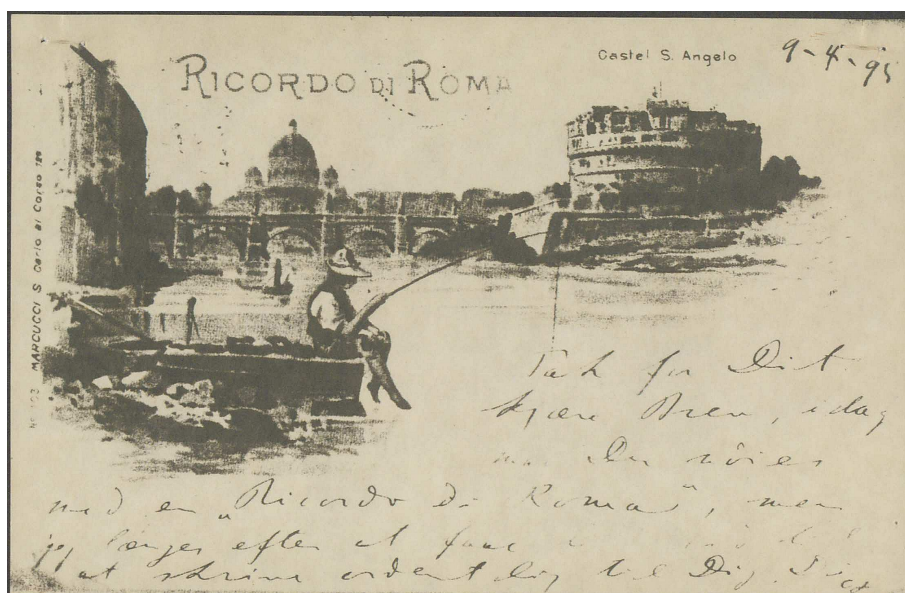 RICORDO DI ROMA
Castel S. Angelo
9-4-95
MARCUCCI S. Carlo al Corso 129
Tak for Dit
kjære Brev, idag
maa Du nöies
med en „Ricordo di Roma“, men
jeg længes efter at faae
at skrive ordentlig til Dig.